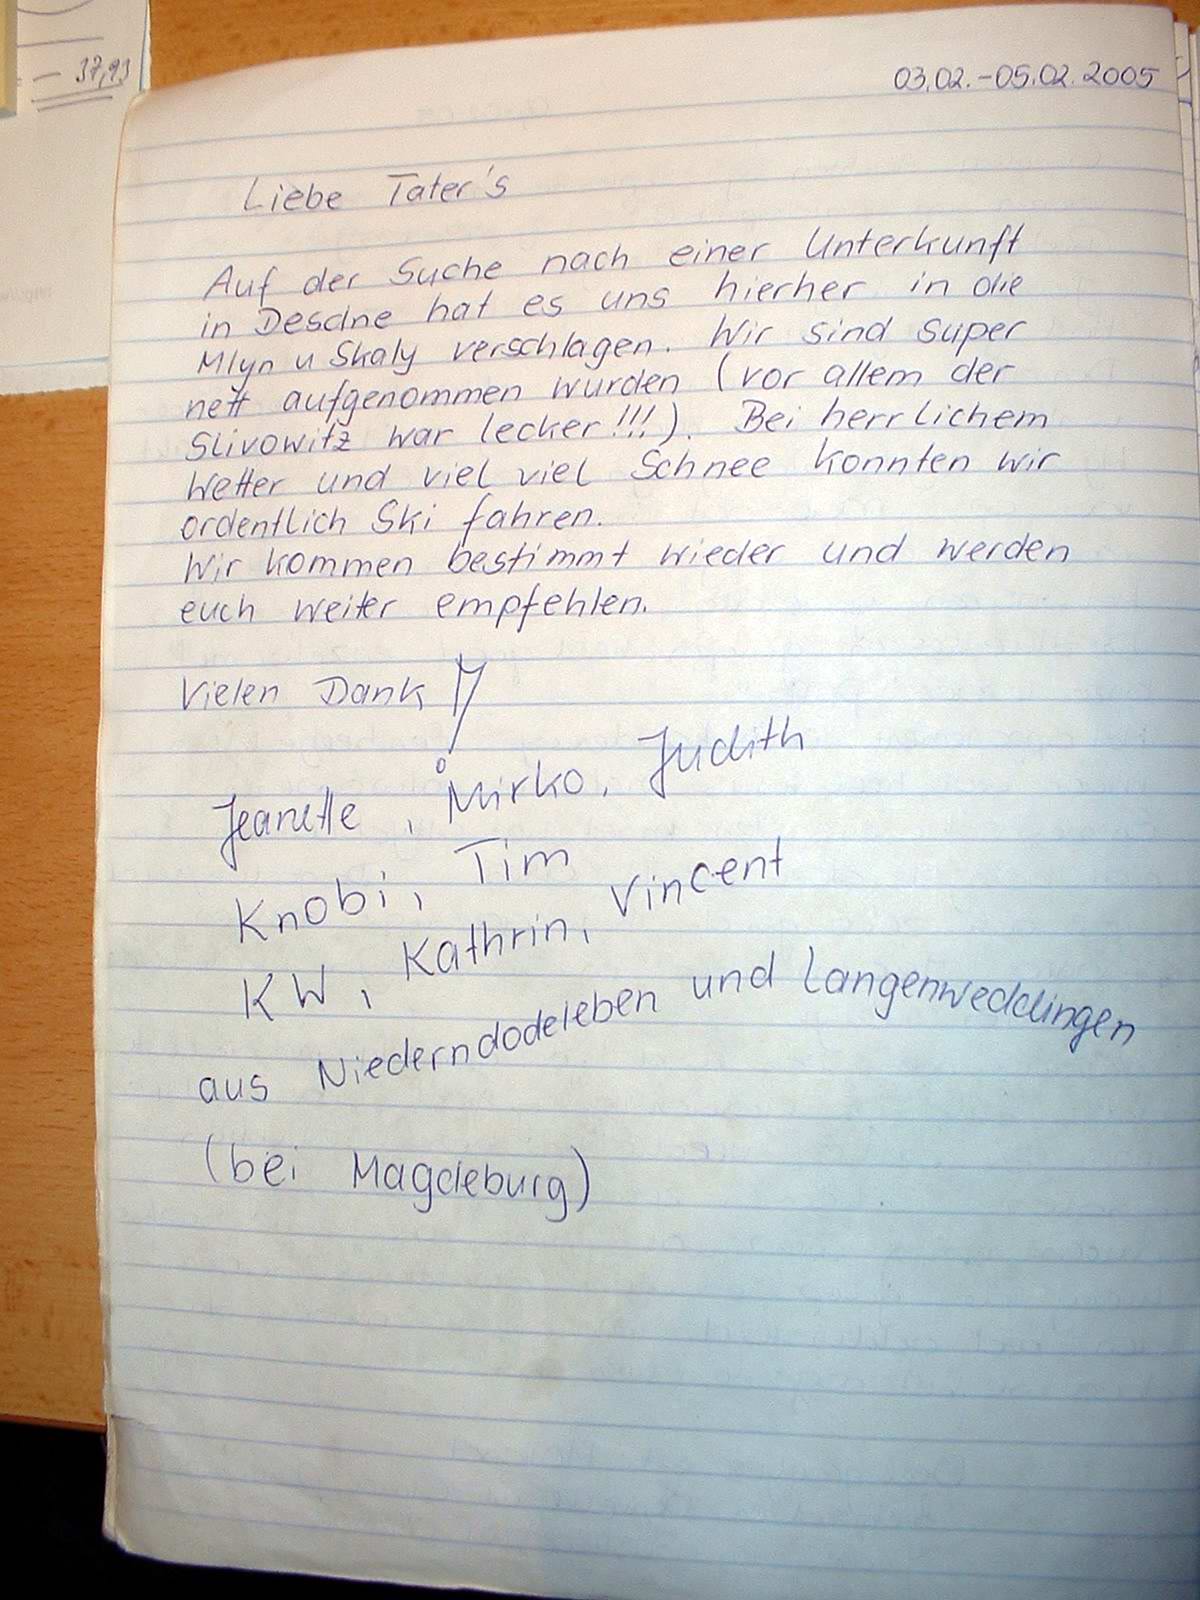 - 37,93
03.02.-05.02.2005
Liebe Tater's
Auf der Suche nach einer Unterkunft
in Descine hat es uns hierher in die
Mlyn u Skaly verschlagen. Wir sind super
nett aufgenommen wurden (vor allem der
Slivowitz war lecker!!!). Bei herrlichem
Wetter und viel viel Schnee konnten wir
ordentlich Ski fahren.
Wir kommen bestimmt wieder und werden
euch weiter empfehlen.
Vielen Dank!
Jeanette, Mirko, Judith
Knobi, Tim
KW, Kathrin, Vincent
aus Niederndodeleben und Langenweddingen
(bei Magdeburg)